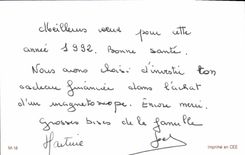 Meilleurs vœux pour cette
année 1992. Bonne santé.
Nous avons choisi d'investir ton
cadeau financier dans l'achat
d'un magnétoscope. Encore merci.
Grosses bises de la famille
Imprimé en CEE